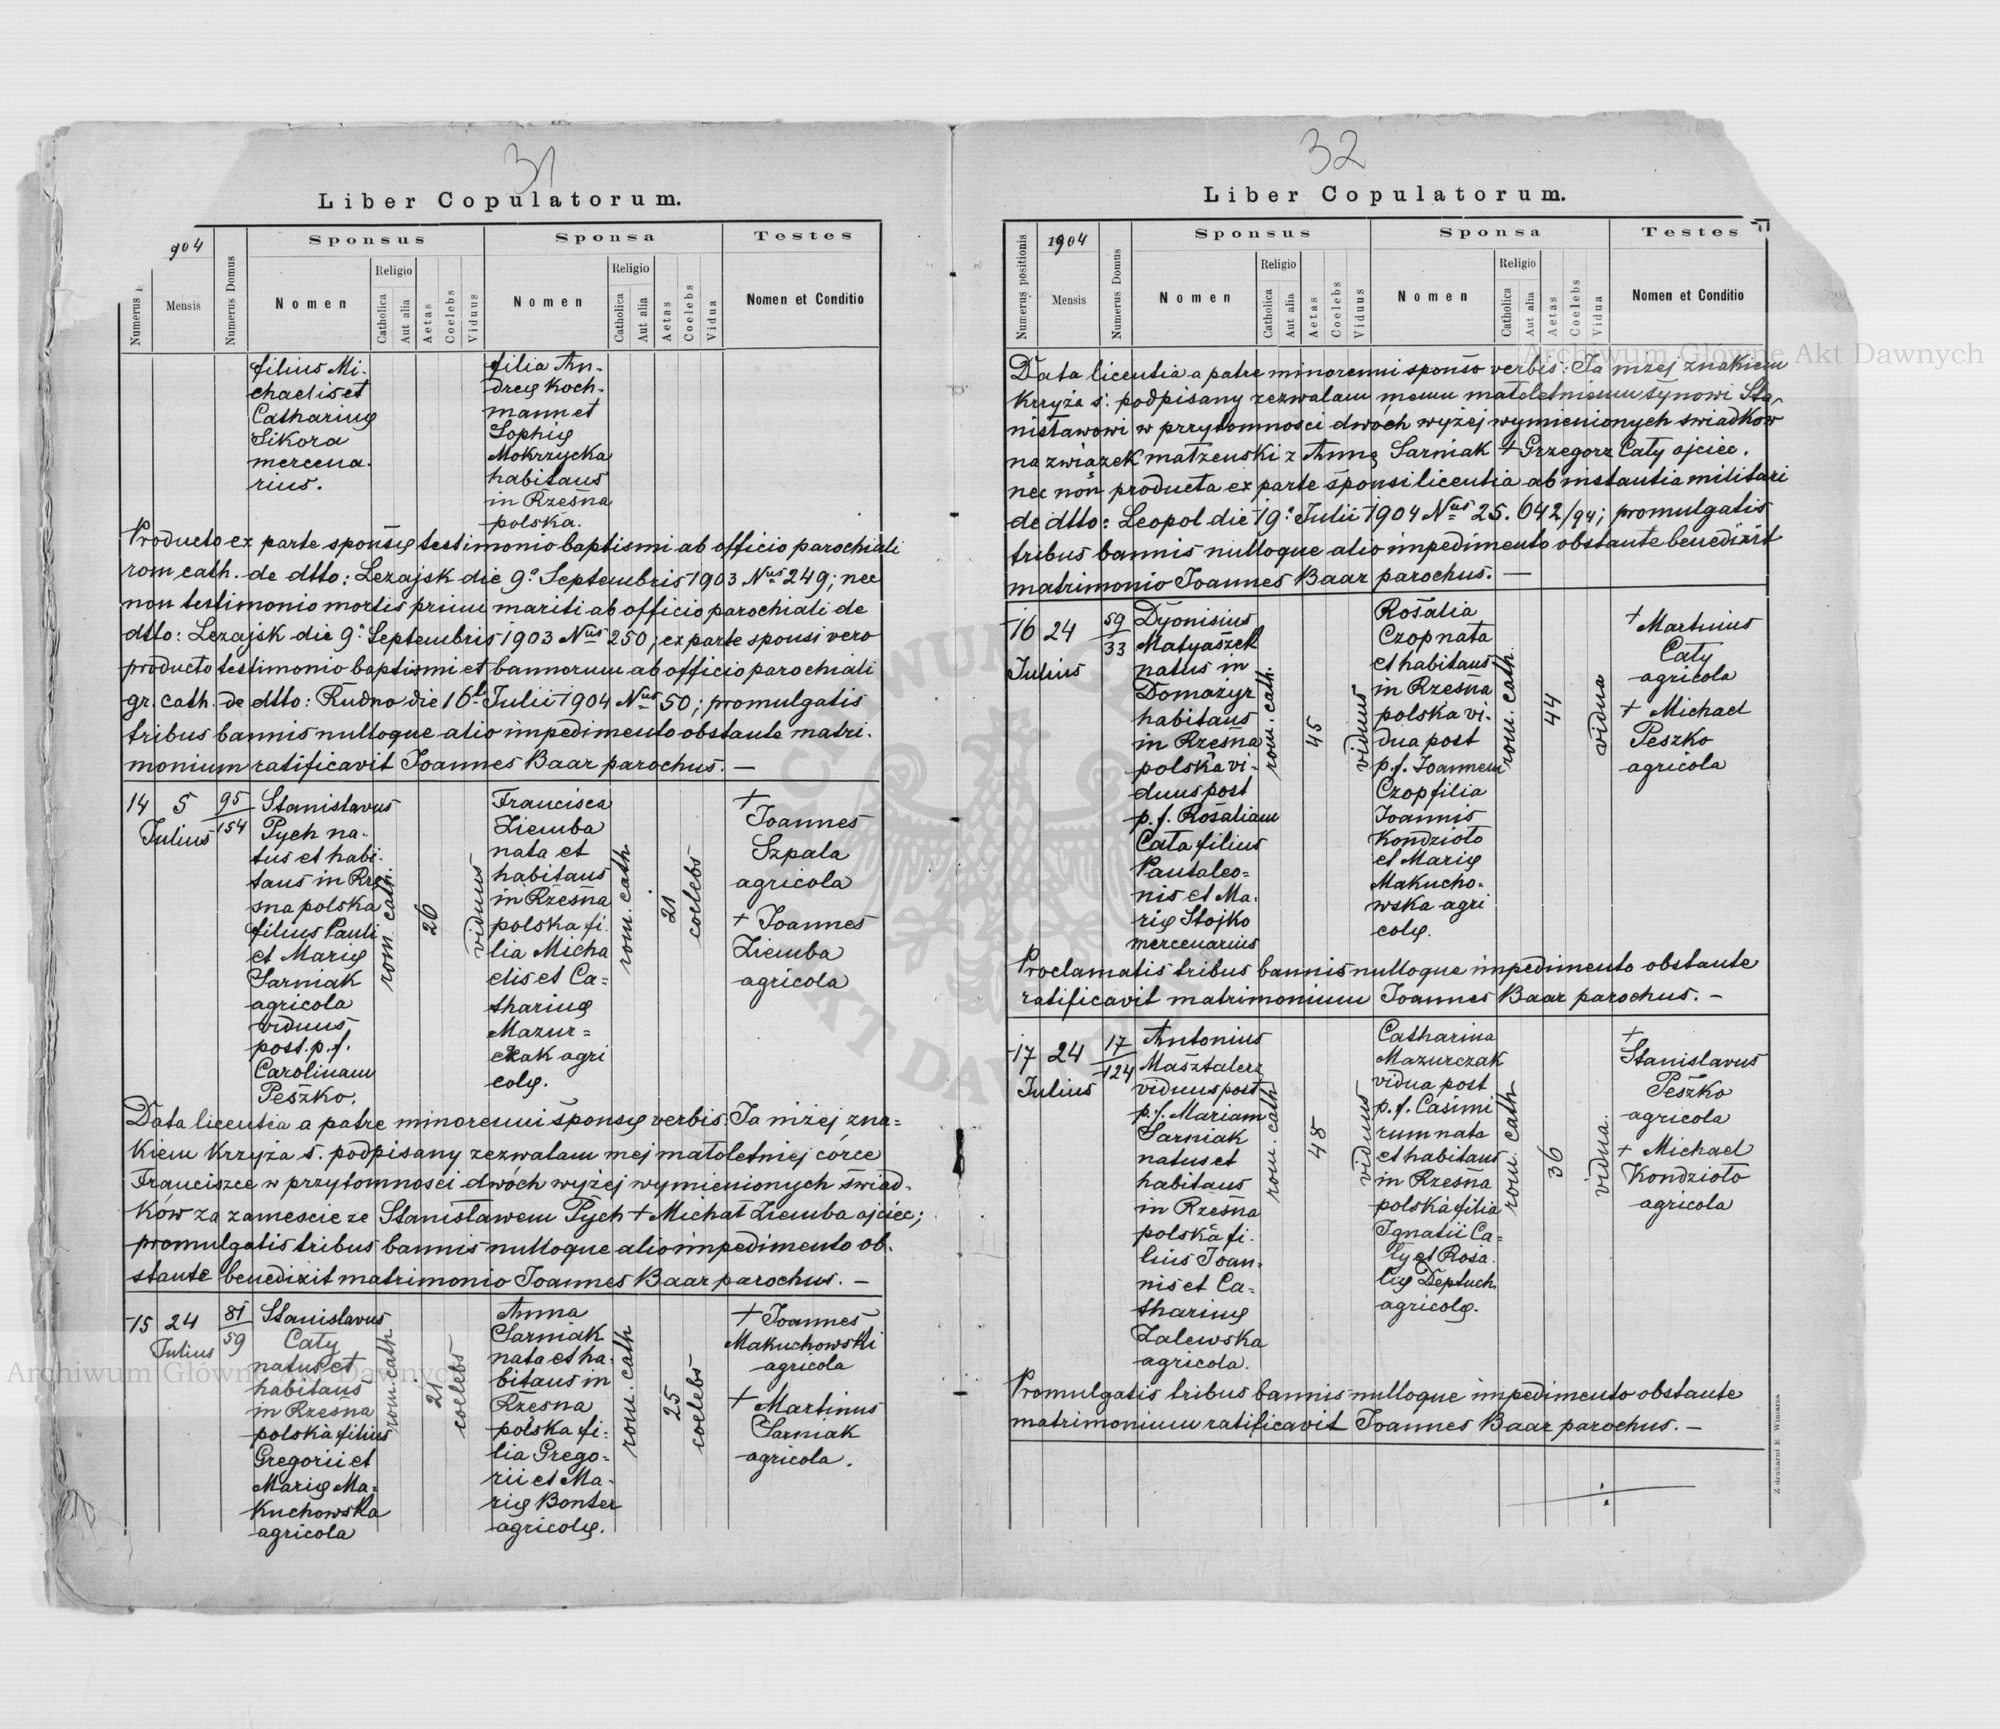 31
Liber Copulatorum.
904
Numerus
Mensis
Numerus Domus
Sponsus
Sponsa
Testes
Nomen
Religio
Catholica
Aut alia
Aetas
Coelebs
Viduus
Nomen
Religio
Catholica
Aut alia
Aetas
Coelebs
Vidua
Nomen et Conditio
filius Mi-
chaelis et
Catharinę
Sikora
mercena-
rius.
filia An-
dreę Koch-
mann et
Sophię
Mokrzycka
habitans
in Rzesna
polska.
Producto ex parte sponsę testimonio baptismi ab officio parochiali
rom cath. de dtto: Lezajsk die 9ª Septembris 1903 Nus 249; nec
non testimonio mortis primi mariti ab officio parochiali de
dtto: Lezajsk die 9ª Septembris 1903 Nus 250; ex parte sponsi vero
producto testimonio baptismi et bannorum ab officio parochiali
gr. cath. de dtto: Rudno die 16ta Julii 1904 Nus 50; promulgatis
tribus bannis nulloque alio impedimento obstante matri-
monium ratificavit Joannes Baar parochus. —
14
5
Julius
95
154
Stanislavus
Pych na-
tus et habi-
tans in Rze
sna polska
filius Pauli
et Marię
Sarniak
agricola
viduus
post. p. f.
Carolinam
Peszko.
rom. cath.
26
viduus
Francisca
Ziemba
nata et
habitans
in Rzesna
polska fi-
lia Micha
elis et Ca=
tharinę
Mazur=
czak agri
colę.
rom. cath.
21
coelebs
+
Joannes
Szpala
agricola
+ Joannes
Ziemba
agricola
Data licentia a patre minorenni sponsę verbis: Ja niżej zna=
kiem Krzyża ś. podpisany zezwalam mej małoletniej córce
Franciszce w przytomności dwóch wyżej wymienionych świad-
ków za zamescie ze Stanisławem Pych + Michał Ziemba ojciec;
promulgatis tribus bannis nulloque alio impedimento ob-
stante benedixit matrimonio Joannes Baar parochus. —
15
24
Julius
81
59
Stanislavus
Cały
natus et
habitans
in Rzesna
polska filius
Gregorii et
Marię Ma-
kuchowska
agricola
rom. cath.
21
coelebs
Anna
Sarniak
nata et ha-
bitans in
Rzesna
polska fi-
lia Grego-
rii et Ma-
rię Bonter
agricolę.
rom. cath
25
coelebs
+ Joannes
Makuchowski
agricola
+ Martinus
Sarniak
agricola.
32
Liber Copulatorum.
Numerus positionis
1904
Mensis
Numerus Domus
Sponsus
Sponsa
Testes
Nomen
Religio
Catholica
Aut alia
Aetas
Coelebs
Viduus
Nomen
Religio
Catholica
Aut alia
Aetas
Coelebs
Vidua
Nomen et Conditio
Data licentia a patre minorenni sponso verbis: Ja niżej znakiem
Krzyża ś. podpisany zezwalam memu małoletniemu synowi Sta-
nisławowi w przytomności dwóch wyżej wymienionych swiadków
na związek małzenski z Anną Sarniak + Grzegorz Cały ojciec.
nec non producta ex parte sponsi licentia ab instantia militari
de dtto: Leopol die 19ª Julii 1904 Nus 25.642/94; promulgatis
tribus bannis nulloque alio impedimento obstante benedixit
matrimonio Joannes Baar parochus. —
16
24
Julius
59
33
Dyonisius
Matyaszek
natus in
Domażyr
habitans
in Rzesna
polska vi-
duus post
p. f. Rosaliam
Cała filius
Pantaleo-
nis et Ma-
rię Stojko
mercenarius
rom. cath.
45
viduus
Rosalia
Czop nata
et habitans
in Rzesna
polska vi-
dua post
p. f. Joannem
Czop filia
Joannis
Kondzioło
et Marię
Makucho-
wska agri
colę.
rom. cath.
44
vidua
+ Martinus
Cały
agricola
+ Michael
Peszko
agricola
Proclamatis tribus bannis nulloque impedimento obstante
ratificavit matrimonium Joannes Baar parochus. —
17
24
Julius
17
124
Antonius
Masztalerz
viduus post
p. f. Mariam
Sarniak
natus et
habitans
in Rzesna
polska fi-
lius Joan-
nis et Ca=
tharinę
Zalewska
agricola.
rom. cath
48
viduus
Catharina
Mazurczak
vidua post
p. f. Casimi
rum nata
et habitans
in Rzesna
polska filia
Ignatii Ca=
ły et Rosa
lię Deptuch
agricolę.
rom. cath
36
vidua.
+
Stanislavus
Peszko
agricola
+ Michael
Kondzioło
agricola
Promulgatis tribus bannis nulloque impedimento obstante
matrimonium ratificavit Joannes Baar parochus. —
Z drukarni E. Winiarza
Archiwum Główne Akt Dawnych
Archiwum Główne Akt Dawnych